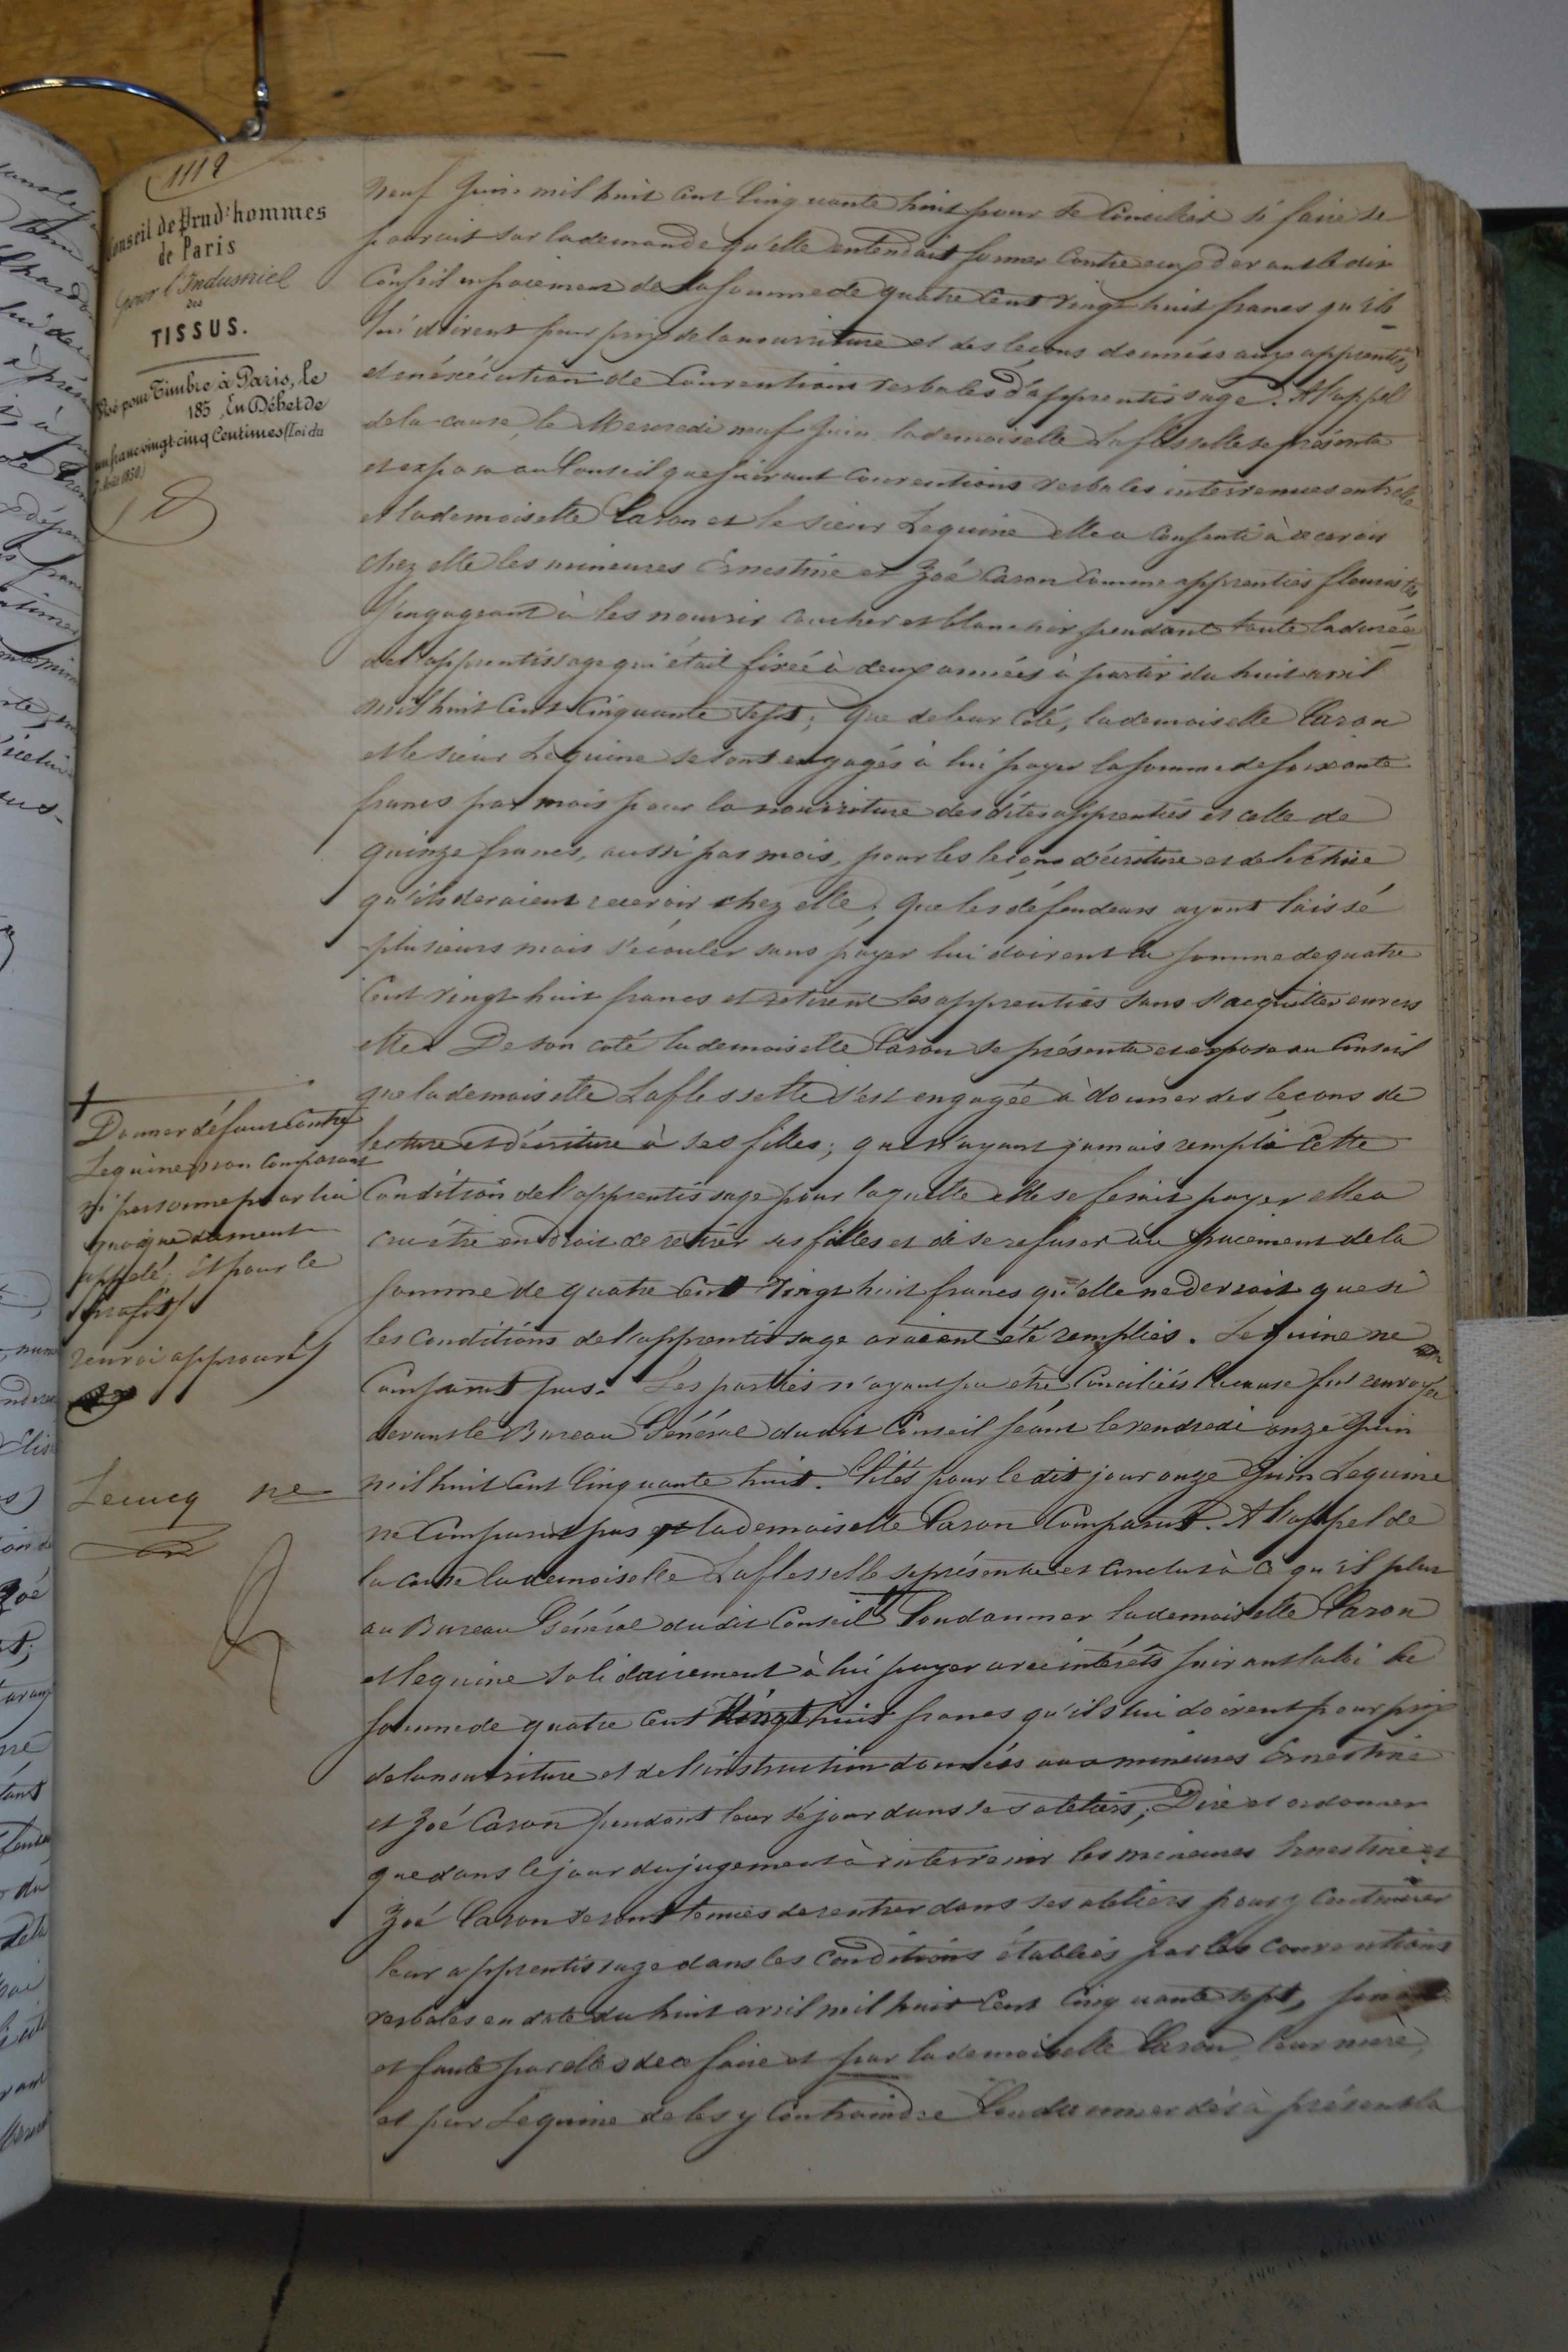 1112
Conseil de Prud'hommes
de Paris
pour l'Industriel
des
TISSUS.
Visé pour Timbre à Paris, le
185 , En Débet de
un franc vingt cinq Centimes (Loi du
neuf Juin mil huit cent cinquante huit pour se Concilier si faire se
pouvait sur la demande qu'elle entendait former Contre eux devant le dit
Conseil en paiement de la somme de quatre cent vingt huit francs qu'ils
lui doivent pour prix de la nourriture et des leçons données aux apprenties
et en exécution de Conventions verbales d'apprentissage. A l'appel
de la cause, le Mercredi neuf Juin, la demoiselle Laflesselle se présenta
et exposa au Conseil que suivant Conventions verbales intervenues entr'elle
et la demoiselle Caron et le sieur Lequine elle a consenti à recevoir
chez elle les mineures Ernestine et Zoé Caron comme apprenties fleuristes
s'engageant à les nourrir coucher et blanchir pendant toute la durée
de l'apprentissage qui était fixée à deux années à partir du huit avril
mil huit Cent Cinquante sept; que de leur côté, la demoiselle Caron
et le sieur Lequine se sont engagés à lui payer la somme de soixante
francs par mois pour la nourriture des dites apprenties et celle de
quinze francs, aussi par mois, pour les leçons d'écriture et de lecture
qu'ils devaient recevoir chez elle; que les défendeurs ayant laissé
plusieurs mois s'écouler sans payer lui doivent la somme de quatre
Cent vingt huit francs et retirent les apprenties sans s'acquitter envers
elle. De son coté la demoiselle Caron se présenta et exposa au Conseil
que la demoiselle Laflesselle s'est engagée à donner des leçons de
lecture et d'écriture à ses filles; que n'ayant jamais rempli cette
Condition de l'apprentissage pour laquelle elle se ferait payer elle a
cru être en droit de retirer ses filles et de se refuser au paiement de la
somme de quatre Cent vingt huit francs qu'elle ne devrait que si
les conditions de l'apprentissage avaient été remplies. Lequine ne
Comparut pas. Les parties n'ayant pu être Conciliées la cause fut renvoyée
devant le Bureau Général dudit Conseil séant le vendredi onze Juin
mil huit Cent Cinquante huit. Cités pour le dit jour onze Juin Lequine
ne Comparut pas et la demoiselle Caron Comparut. A l'appel de
la cause la demoiselle Laflesselle se présenta et conclut à ce qu'il plut
au Bureau Général dudit Conseil Condamner la demoiselle Caron
et Lequine solidairement à lui payer avec intérêts suivant la loi la
somme de quatre Cent Vingt huit francs qu'ils lui doivent pour prix
de la nourriture et de l'instruction données aux mineures Ernestine
et Zoé Caron pendant leur séjour dans ses ateliers; Dire et ordonner
que dans le jour du jugement à intervenir les mineures Ernestine et
Zoé Caron seront tenues de rentrer dans ses ateliers pour y Continuer
leur apprentissage dans les conditions établies par les conventions
verbales en date du huit avril mil huit Cent Cinquante sept, sinon
et faute par elles de ce faire et par la demoiselle Caron, leur mère,
et par Lequine de les y Contraindre Condamner dès à présent la
Donner défaut Contre
Lequine non Comparant
ni personne pour lui
quoique dûment
appelé; Et pour le
profit /
renvoi approuvé
Lecucq